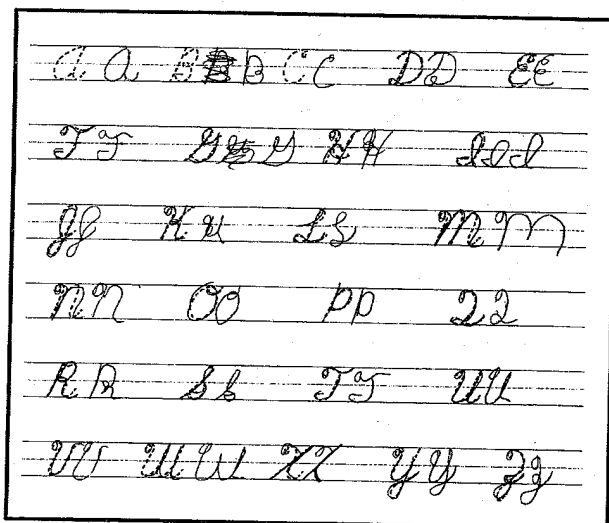 A A B B C C D D E E
F F G G H H I I I
J J K K L L M M
N N O O P P Q Q
R R S S T T U U
V V W W X X Y Y Z Z